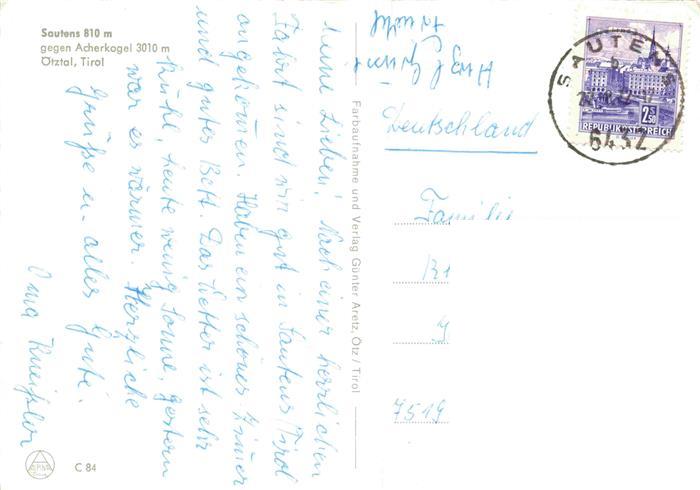 Sautens 810 m
gegen Acherkogel 3010 m
Ötztal, Tirol
Meine Lieben! Nach einer herrlichen
Fahrt sind wir gut in Sautens/Tirol
angekommen. Haben ein schönes Zimmer
und gutes Bett. Das Wetter ist sehr
kühl, heute wenig Sonne, gestern
war es wärmer. Herzliche
Grüße u. alles Gute.
Oma
C 84
Farbaufnahme und Verlag Günter Aretz, Ötz / Tirol
SAUTENS
6432
2.50
REPUBLIK ÖSTERREICH
Deutschland
Familie
7519